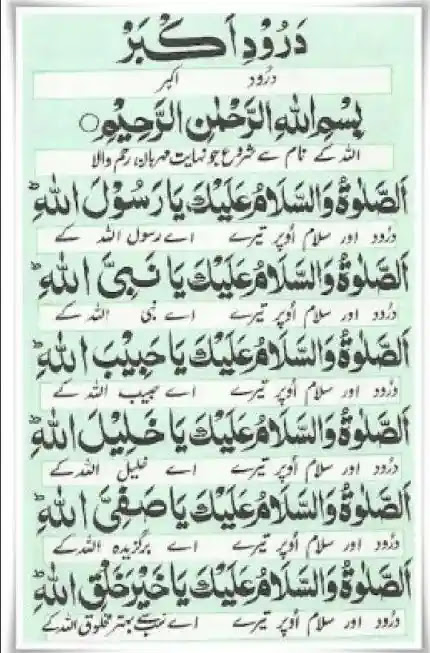 دَرُوْدِ اَكْبَرْ
درُود اکبر
بِسْمِ اللهِ الرَّحْمٰنِ الرَّحِيْمِ○
اللہ کے نام سے شروع جو نہایت مہربان، رحم والا
اَلصَّلٰوةُ وَالسَّلَامُ عَلَيْكَ يَا رَسُوْلَ اللهِ ؕ
درُود اور سلام اُوپر تیرے اے رسول اللہ کے
اَلصَّلٰوةُ وَالسَّلَامُ عَلَيْكَ يَا نَبِىَّ اللهِ ؕ
درُود اور سلام اُوپر تیرے اے نبی اللہ کے
اَلصَّلٰوةُ وَالسَّلَامُ عَلَيْكَ يَا حَبِيْبَ اللهِ ؕ
درُود اور سلام اُوپر تیرے اے حبیب اللہ کے
اَلصَّلٰوةُ وَالسَّلَامُ عَلَيْكَ يَا خَلِيْلَ اللهِ ؕ
درُود اور سلام اُوپر تیرے اے خلیل اللہ کے
اَلصَّلٰوةُ وَالسَّلَامُ عَلَيْكَ يَا صَفِىَّ اللهِ ؕ
درُود اور سلام اُوپر تیرے اے برگزیدہ اللہ کے
اَلصَّلٰوةُ وَالسَّلَامُ عَلَيْكَ يَا خَيْرَ خَلْقِ اللهِ ؕ
درُود اور سلام اُوپر تیرے اے سب سے بہتر مخلوق اللہ کے